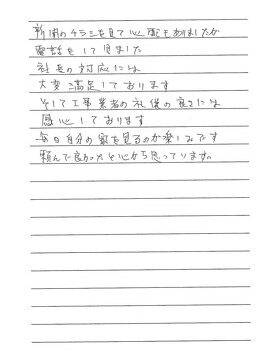 新聞のチラシを見て心配もありましたが
電話をして見ました
社長の対応には
大変満足しております
そして工事業者の礼儀の良さには
感心しております
毎日自分の家を見るのが楽しみです
頼んで良かったと心から思っています。